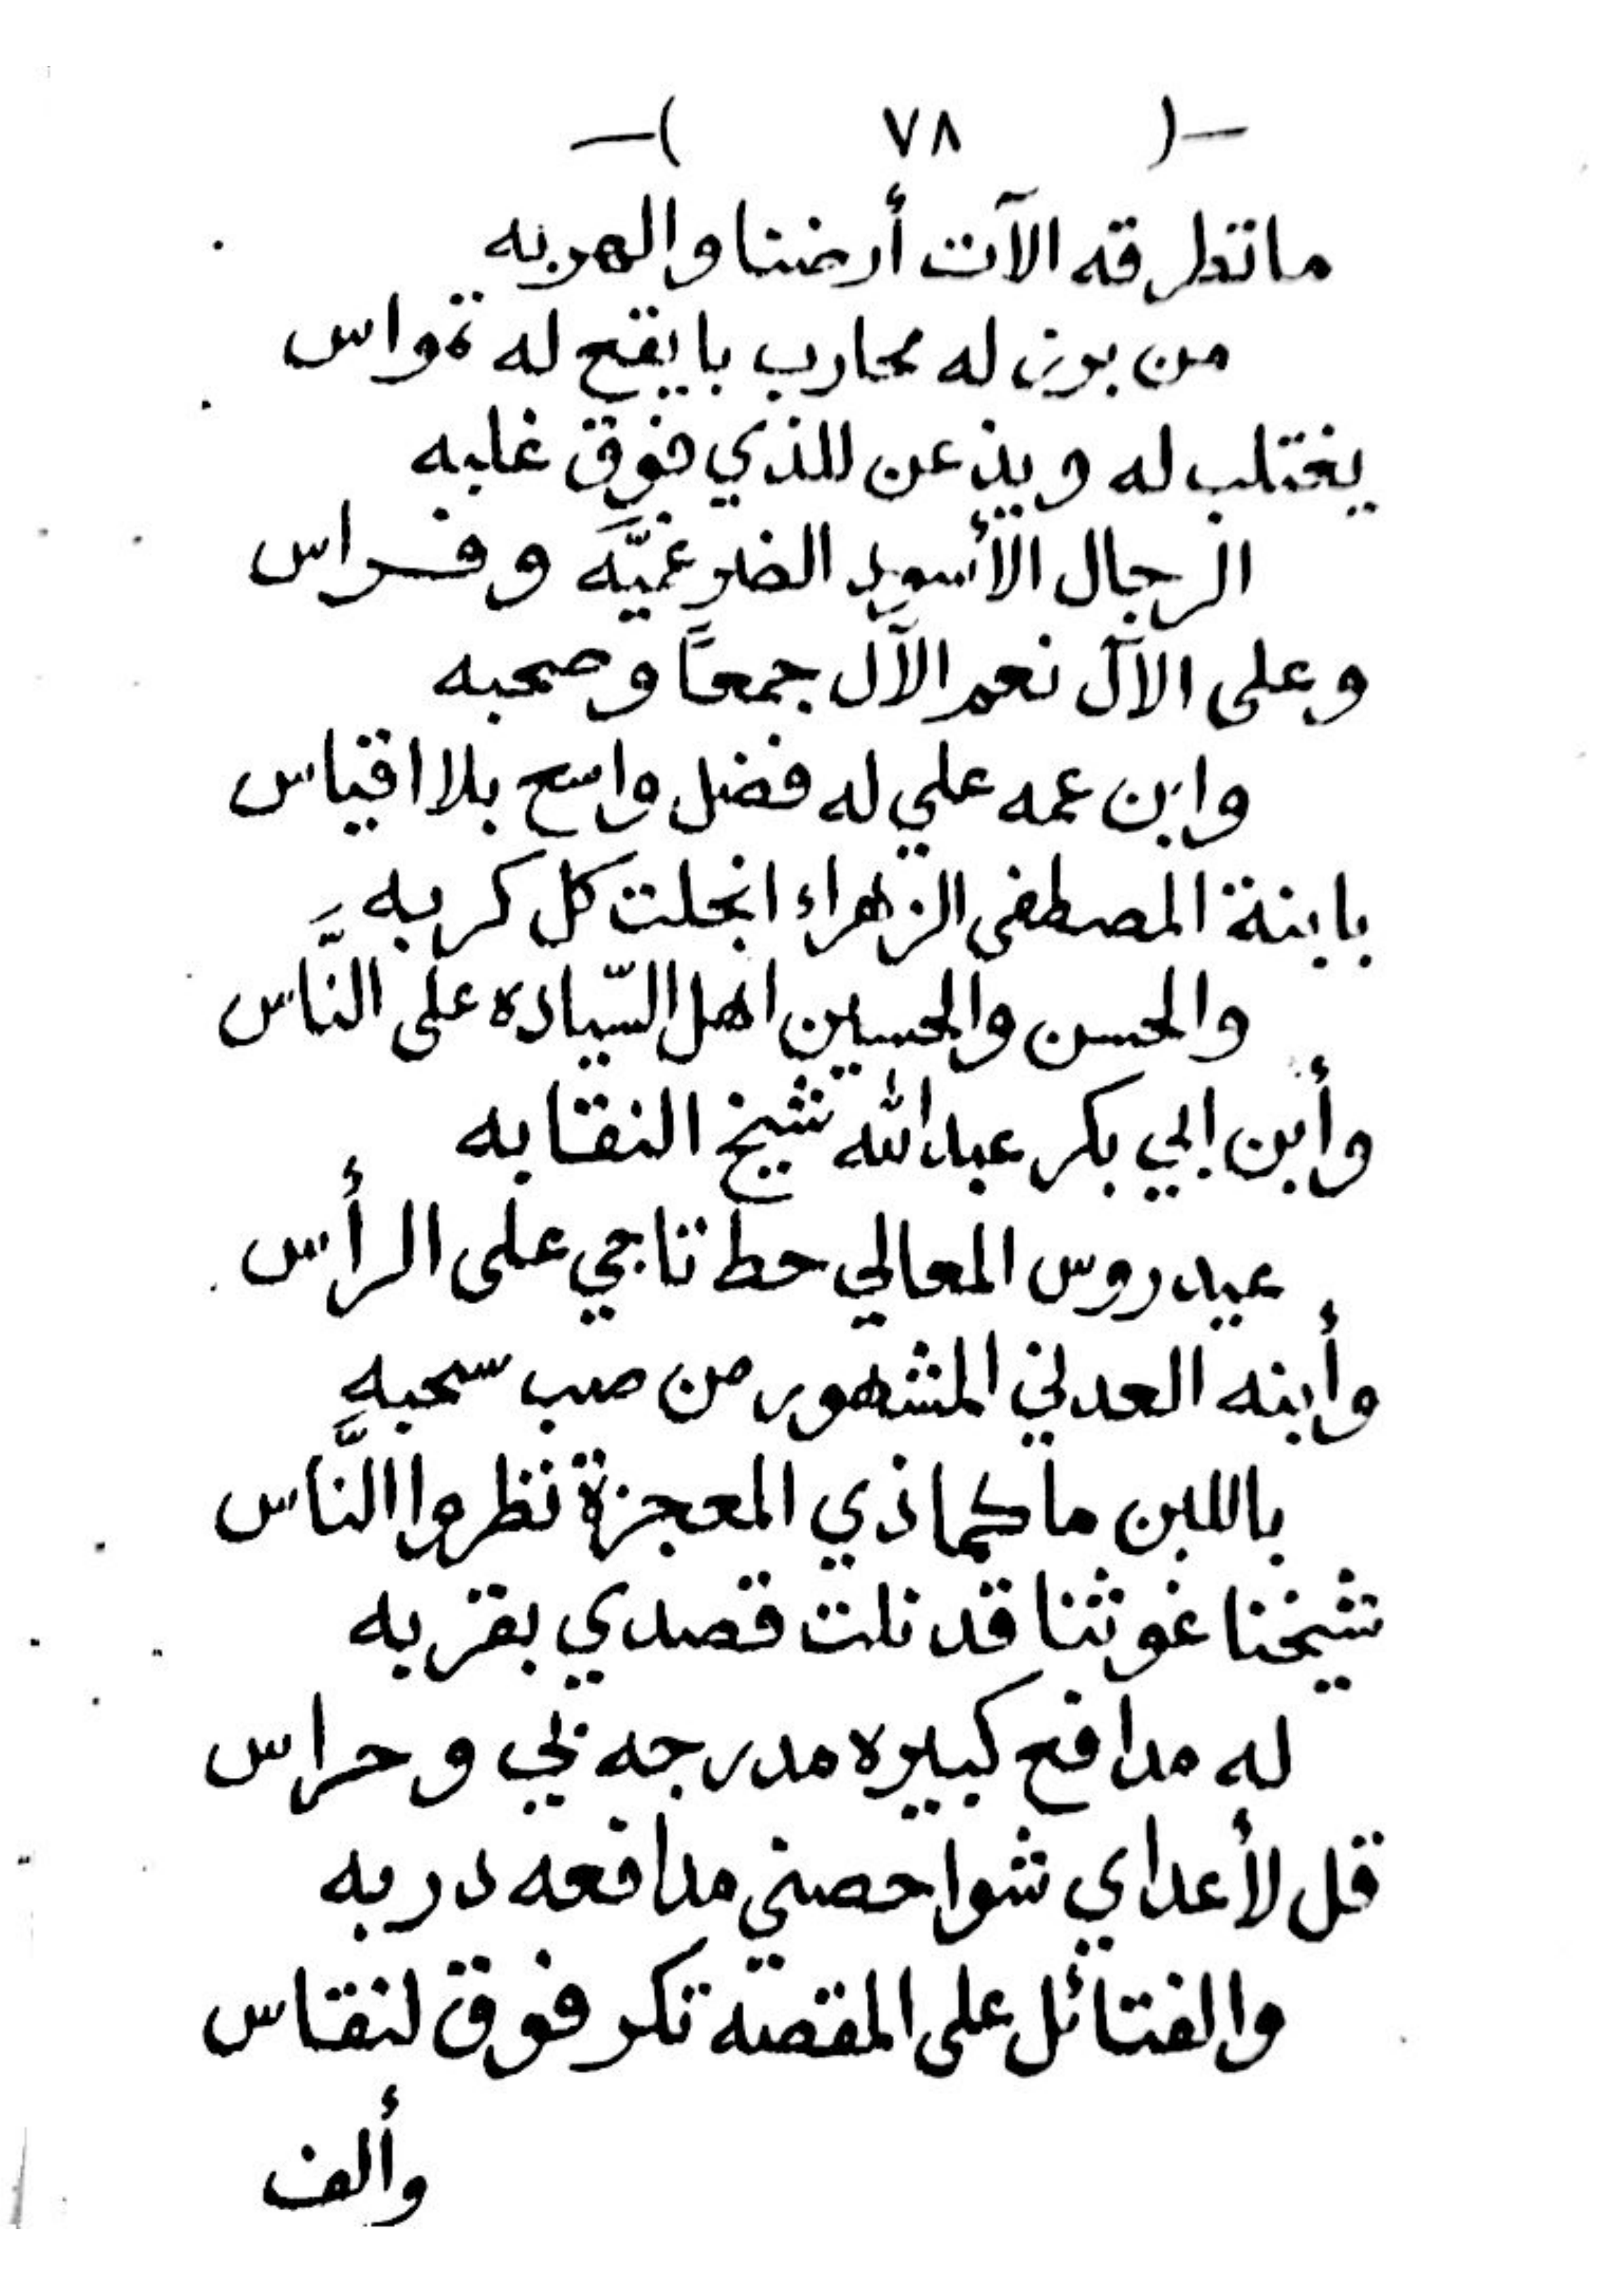 —( ٧٨ )—
ماتطرقه الآت أرضنا والهربه
من برز له محارب بايقع له تمواس
يختلب له ويذعن للذي فوق غلبه
الرجال الأسود الضرغميَّه وفراس
وعلى الآل نعم الآل جمعاً وصحبه
وابن عمه علي له فضل واسع بلا اقياس
بابنة المصطفى الزهراء انجلت كل كربه
والحسن والحسين اهل السّياده على النَّاس
وأبن ابي بكر عبدالله شيخ النقابه
عيدروس المعالي حط تاجي على الرأس
وأبنه العدني المشهور من صب سحبه
باللبن ماكماذي المعجزة نظروا النَّاس
شيخنا غوثنا قد نلت قصدي بقربه
له مدافع كبيره مدرجه لي وحراس
قل لأعداي شوا حصني مدافعه دربه
والفتائل على المقصه تكر فوق لنقاس
وألف